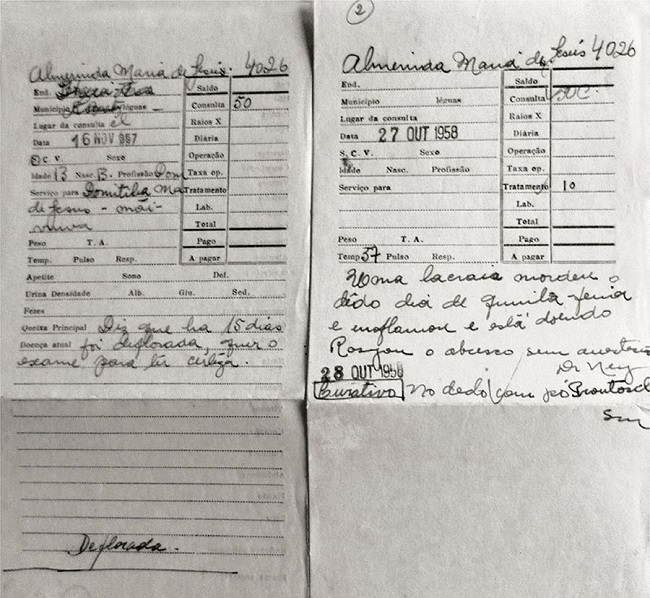 Almerinda Maria de Jesus. 4026
End.
Saldo
Município léguas
Consulta 50
Lugar da consulta
Raios X
Data 16 NOV 957
Diária
S. C. V. Sexo
Operação
Idade 13 Nasc. B. Profissão Dom
Taxa op.
Serviço para Domitilia Ma
Tratamento
de Jesus - mãi-
Lab.
viuva
Total
Peso T. A.
Pago
Temp. Pulso Resp.
A pagar
Apetite Sono Def.
Urina Densidade Alb. Glu. Sed.
Fezes
Queixa Principal Diz que ha 15 dias
Doença atual foi deflorada, quer o
exame para ter certeza.
Deflorada.
2
Almerinda Maria de Jesus 4026
End.
Saldo
Município léguas
Consulta
Lugar da consulta
Raios X
Data 27 OUT 1958
Diária
S. C. V. Sexo
Operação
Idade Nasc. Profissão
Taxa op.
Serviço para
Tratamento 10
Lab.
Total
Peso T. A.
Pago
Temp. 37 Pulso Resp.
A pagar
Uma lacraia mordeu o
dêdo dia de quinta-feira
e inflamou e está doendo
Rasgou o abcesso sem
Dr Ney
28 OUT 1958
Curativo No dedo com pó